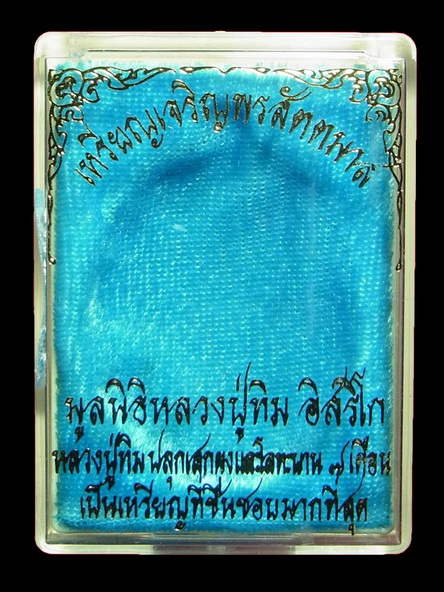 เหรียญเจริญพรสัตตมาส
มูลนิธิหลวงปู่ทิม อิสริโก
หลวงปู่ทิมปลุกเสกผงและโลหะนาน ๗ เดือน
เป็นเหรียญที่ชื่นชอบมากที่สุด